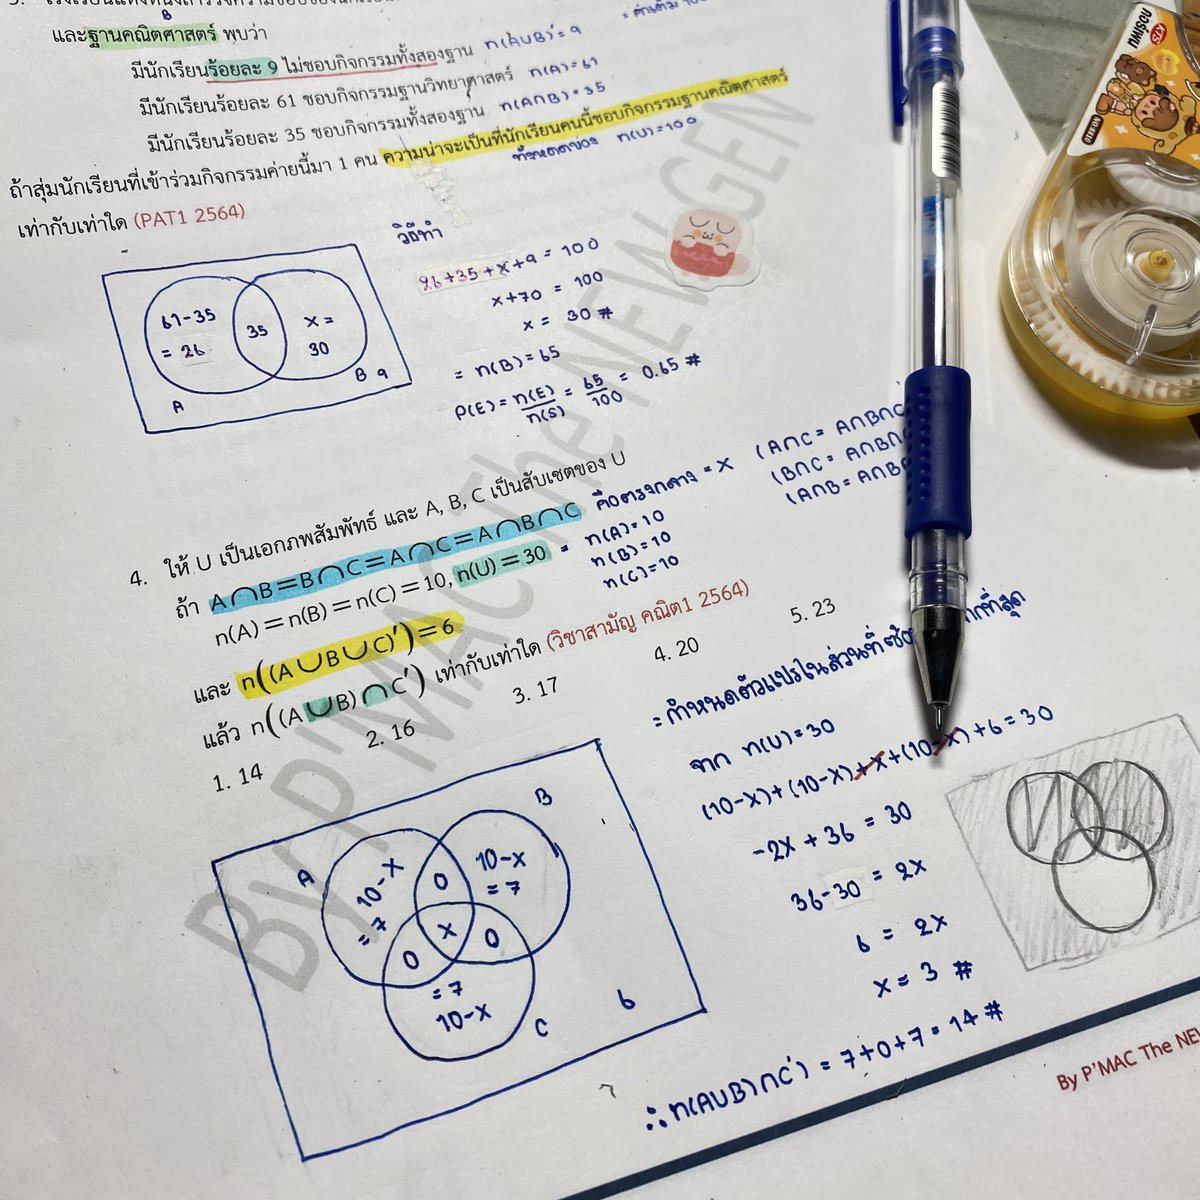 และฐานคณิตศาสตร์ พบว่า
B
มีนักเรียนร้อยละ 9 ไม่ชอบกิจกรรมทั้งสองฐาน n(A∪B)' = 9
มีนักเรียนร้อยละ 61 ชอบกิจกรรมฐานวิทยาศาสตร์ n(A) = 61
มีนักเรียนร้อยละ 35 ชอบกิจกรรมทั้งสองฐาน n(A∩B) = 35
ถ้าสุ่มนักเรียนที่เข้าร่วมกิจกรรมค่ายนี้มา 1 คน ความน่าจะเป็นที่นักเรียนคนนี้ชอบกิจกรรมฐานคณิตศาสตร์
ทั้งหมดของ n(U) = 100
เท่ากับเท่าใด (PAT1 2564)
วิธีทำ
26+35+x+9 = 100
x+70 = 100
x = 30 #
= n(B) = 65
P(E) = n(E)/n(S) = 65/100 = 0.65 #
61-35
= 26
35
x =
30
A
B 9
4. ให้ U เป็นเอกภพสัมพัทธ์ และ A, B, C เป็นสับเซตของ U
ถ้า A∩B=B∩C=A∩C=A∩B∩C คือตรงกลาง = x
(A∩C = A∩B∩C
(B∩C = A∩B∩
(A∩B = A∩B
n(A)=n(B)=n(C)=10, n(U)=30 = n(A)=10
n(B)=10
n(C)=10
และ n((A∪B∪C)′)=6
แล้ว n((A∪B)∩C′) เท่ากับเท่าใด (วิชาสามัญ คณิต1 2564)
1. 14 2. 16 3. 17 4. 20 5. 23
= กำหนดตัวแปรในส่วนที่ซ้อ ากที่สุด
จาก n(U) = 30
(10-x)+(10-x)+x+(10-x)+6=30
-2x + 36 = 30
36-30 = 2x
6 = 2x
x = 3 #
∴ n(A∪B)∩C') = 7+0+7 = 14 #
A
B
10-x
= 7
0
10-x
= 7
x
0
0
= 7
10-x
C
6
By P'MAC The NEWGEN
By P'MAC The NEW
AOSIWU
KTS
NO:8810